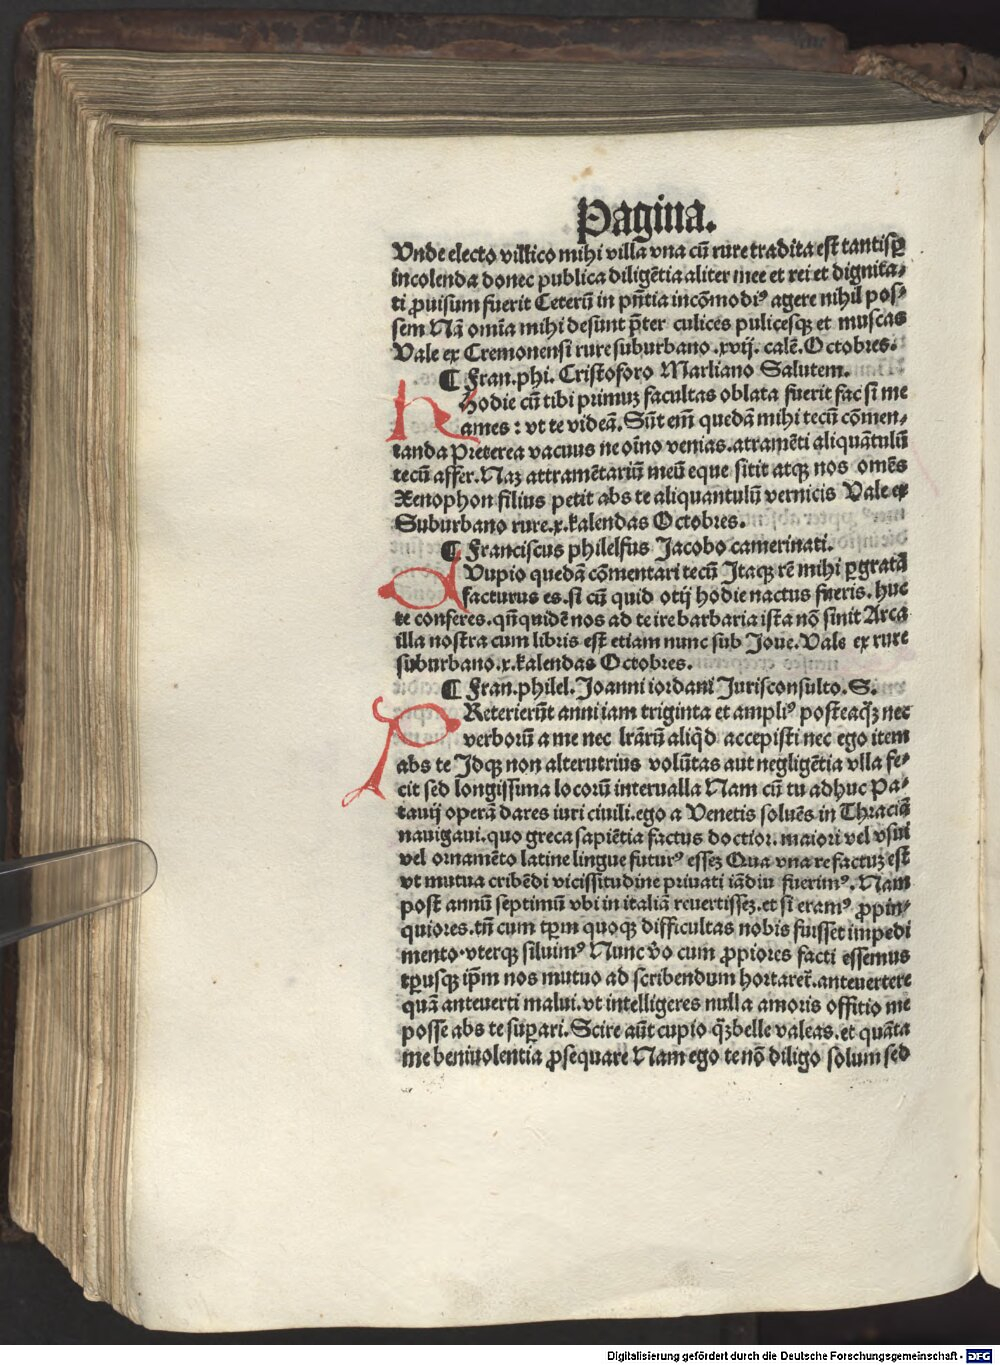 Pagina.
Vnde electo villico mihi villa vna cū rure tradita est tantisꝑ
incolenda donec publica diligētia aliter mee et rei et dignita⸗
ti ꝓuisum fuerit Ceterū in pn̄tia incōmodiꝰ agere nihil pos⸗
sem Nā om̄ia mihi desunt p̄ter culices pulicesqꝫ et muscas
Vale ex Cremonensi rure suburbano .xvij. calē. Octobres.
¶ Fran. phi. Cristoforo Marliano Salutem.
Hodie cū tibi primuꝫ facultas oblata fuerit fac si me
ames : vt te videā. Sūt em̄ quedā mihi tecū cōmen⸗
tanda Preterea vacuus ne oīno venias. atramēti aliquātulū
tecū affer. Naꝫ attramētariū meū eque sitit atqꝫ nos omēs
Xenophon filius petit abs te aliquantulū vernicis Vale ex
Suburbano rure .x. kalendas Octobres.
¶ Franciscus philelfus Jacobo camerinati.
Dupio quedā cōmentari tecū Itaqꝫ rē mihi ꝑgratā
facturus es. si cū quid otij hodie nactus fueris. huc
te conferes. qn̄quidē nos ad te ire barbaria ista nō sinit Arca
illa nostra cum libris est etiam nunc sub Joue. Vale ex rure
suburbano .x. kalendas Octobres.
¶ Fran. philel. Joanni iordani Jurisconsulto. S.
PReterierūt anni iam triginta et ampliꝰ posteaqꝫ̄ nec
verborū a me nec lr̄arū aliqd̓ accepisti nec ego item
abs te Idqꝫ non alterutrius volūtas aut negligētia vlla fe⸗
cit sed longissima locorū interualla Nam cū tu adhuc Pa⸗
tauij operā dares iuri ciuili. ego a Venetis soluēs in Thraciā
nauigaui. quo greca sapiētia factus doctior. maiori vel vsui
vel ornamēto latine lingue futurꝰ esseꝫ Qua vna re factuꝫ est
vt mutua cribēdi vicissitudine priuati iādiu fuerimꝰ. Nam
post annū septimū vbi in italiā reuertisseꝫ. et si eramꝰ ꝓpin⸗
quiores. tn̄ cum tꝑm quoqꝫ difficultas nobis fuisset impedi
mento. vterqꝫ siluimꝰ Nunc v̓o cum ꝓpiores facti essemus
tꝑusqꝫ ip̄m nos mutuo ad scribendum hortaret̄. anteuertere
quā anteuerti malui. vt intelligeres nulla amoris offitio me
posse abs te suꝑari. Scire aūt cupio qꝫ̄belle valeas. et quāta
me beniuolentia ꝓsequare Nam ego te nō diligo solum sed
Digitalisierung gefördert durch die Deutsche Forschungsgemeinschaft - DFG